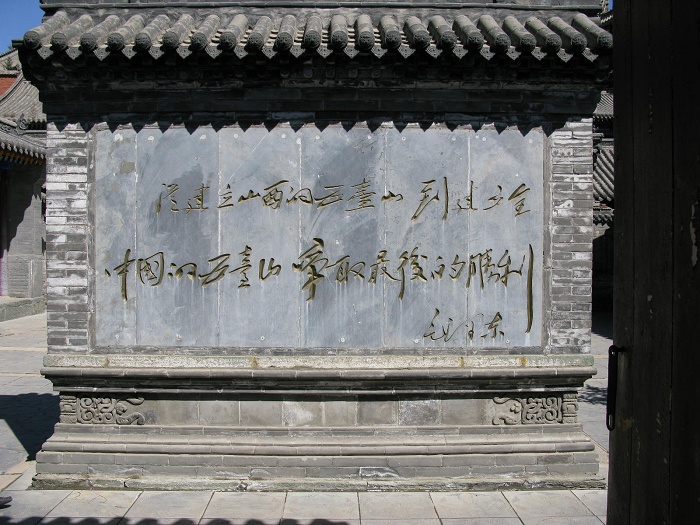 従建立山西的五臺山到建立全
中國的五臺山争取最後的勝利
毛澤东